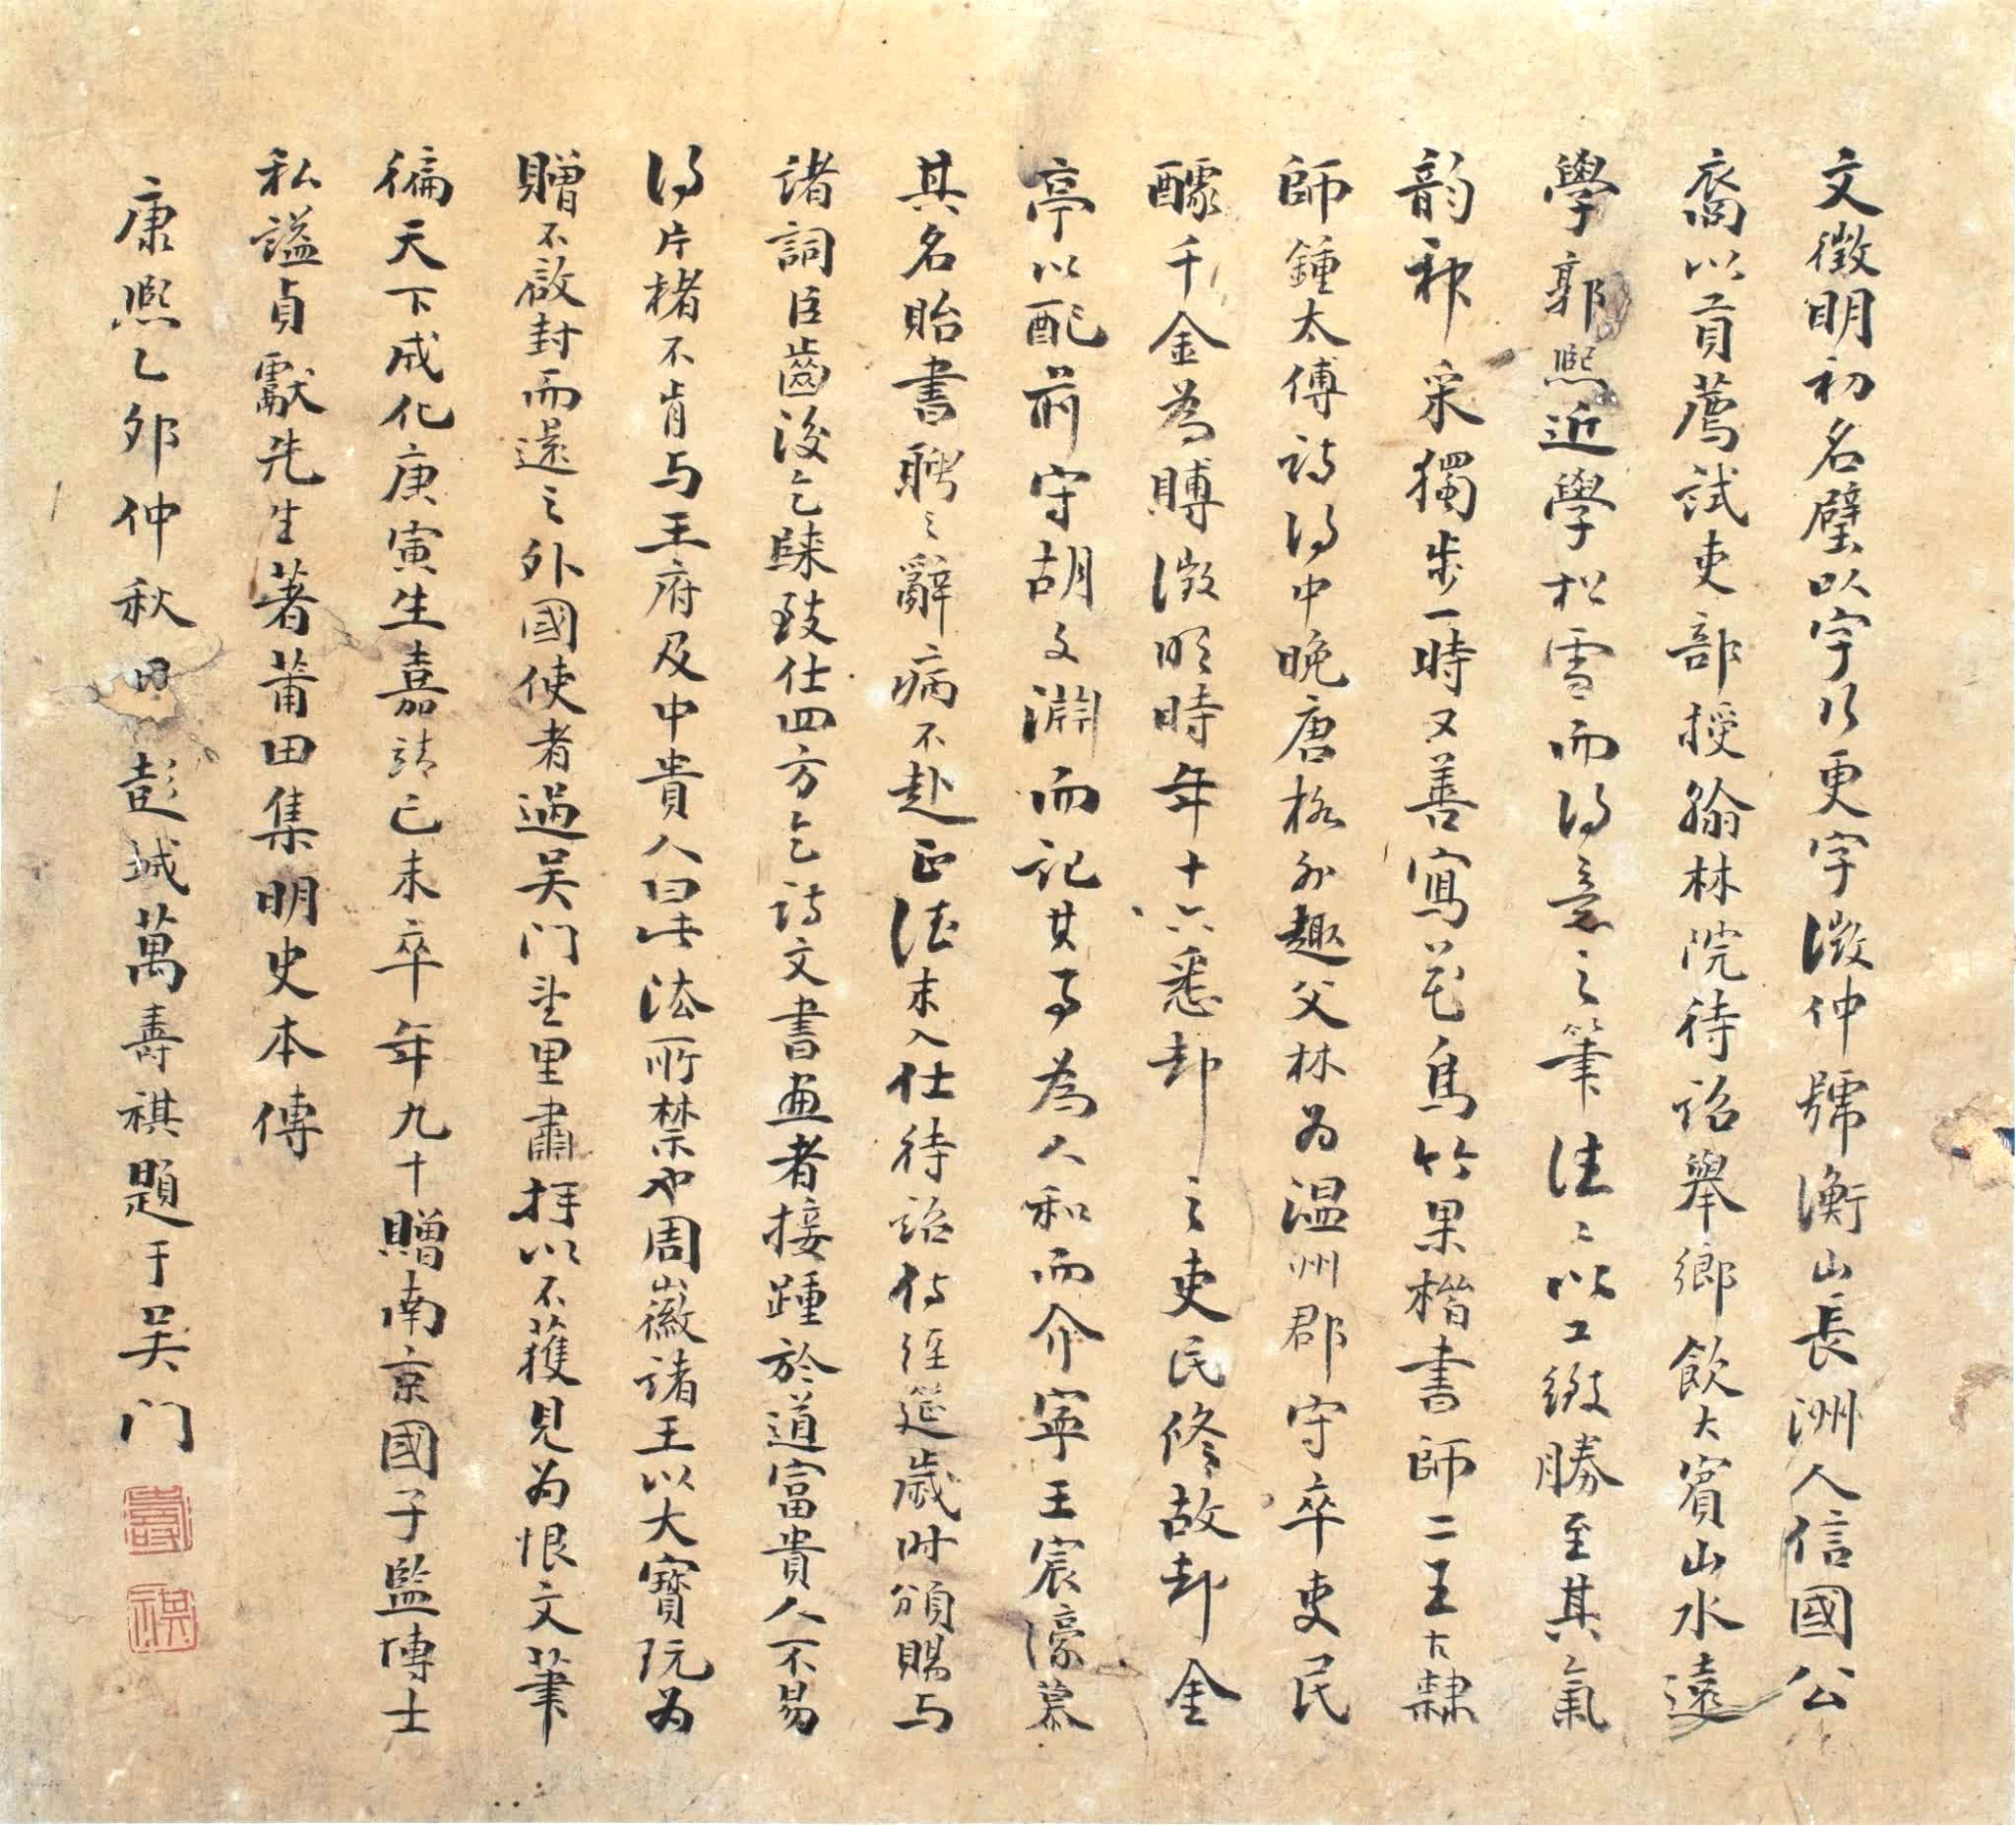 文徵明初名璧以字行更字徵仲號衡山長洲人信國公
裔以貢薦試吏部授翰林院待詔舉鄉飲大賓山水遠
學郭熙近學松雪而得意之筆往〻以工緻勝至其氣
韵神采獨步一時又善寫花鳥竹果楷書師二王古隸
師鍾太傅詩得中晚唐格外趣父林为温州郡守卒吏民
醵千金為賻徵明時年十六悉却之吏民修故却金
亭以配前守胡文淵而記其事為人和而介寧王宸濠慕
其名貽書聘之辭病不赴正德末入仕待詔侍經筵歲时頒賜与
諸詞臣齒後乞歸致仕四方乞詩文書画者接踵於道富貴人不易
得片楮不肯与王府及中貴人曰此法所禁也周徽諸王以大寳玩为
贈不啟封而還之外國使者過吴门望里肅拜以不獲見为恨文筆
徧天下成化庚寅生嘉靖己未卒年九十贈南京國子監博士
私謚貞獻先生著莆田集明史本傳
康熙乙卯仲秋月彭城萬壽祺題于吴门
壽
祺